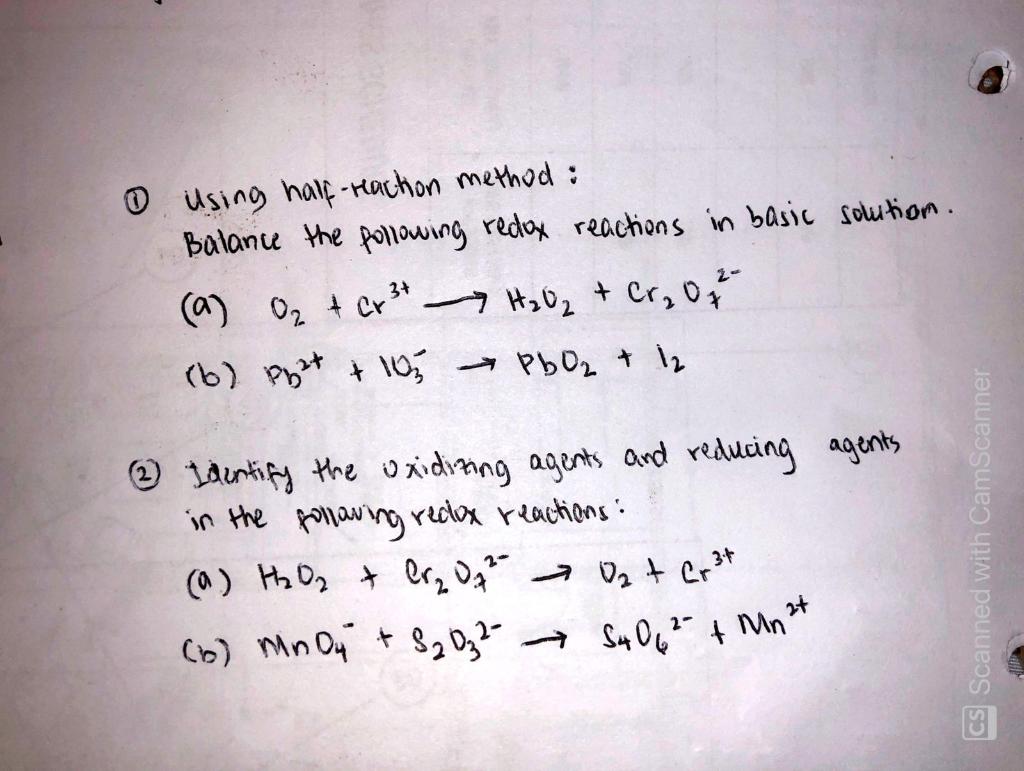 ① Using half-reaction method :
Balance the following redox reactions in basic solution.
(a) O₂ + Cr³⁺ → H₂O₂ + Cr₂O₇²⁻
(b) Pb²⁺ + IO₃⁻ → PbO₂ + I₂
② Identify the oxidizing agents and reducing agents
in the following redox reactions :
(a) H₂O₂ + Cr₂O₇²⁻ → O₂ + Cr³⁺
(b) MnO₄⁻ + S₂O₃²⁻ → S₄O₆²⁻ + Mn²⁺
CS Scanned with CamScanner